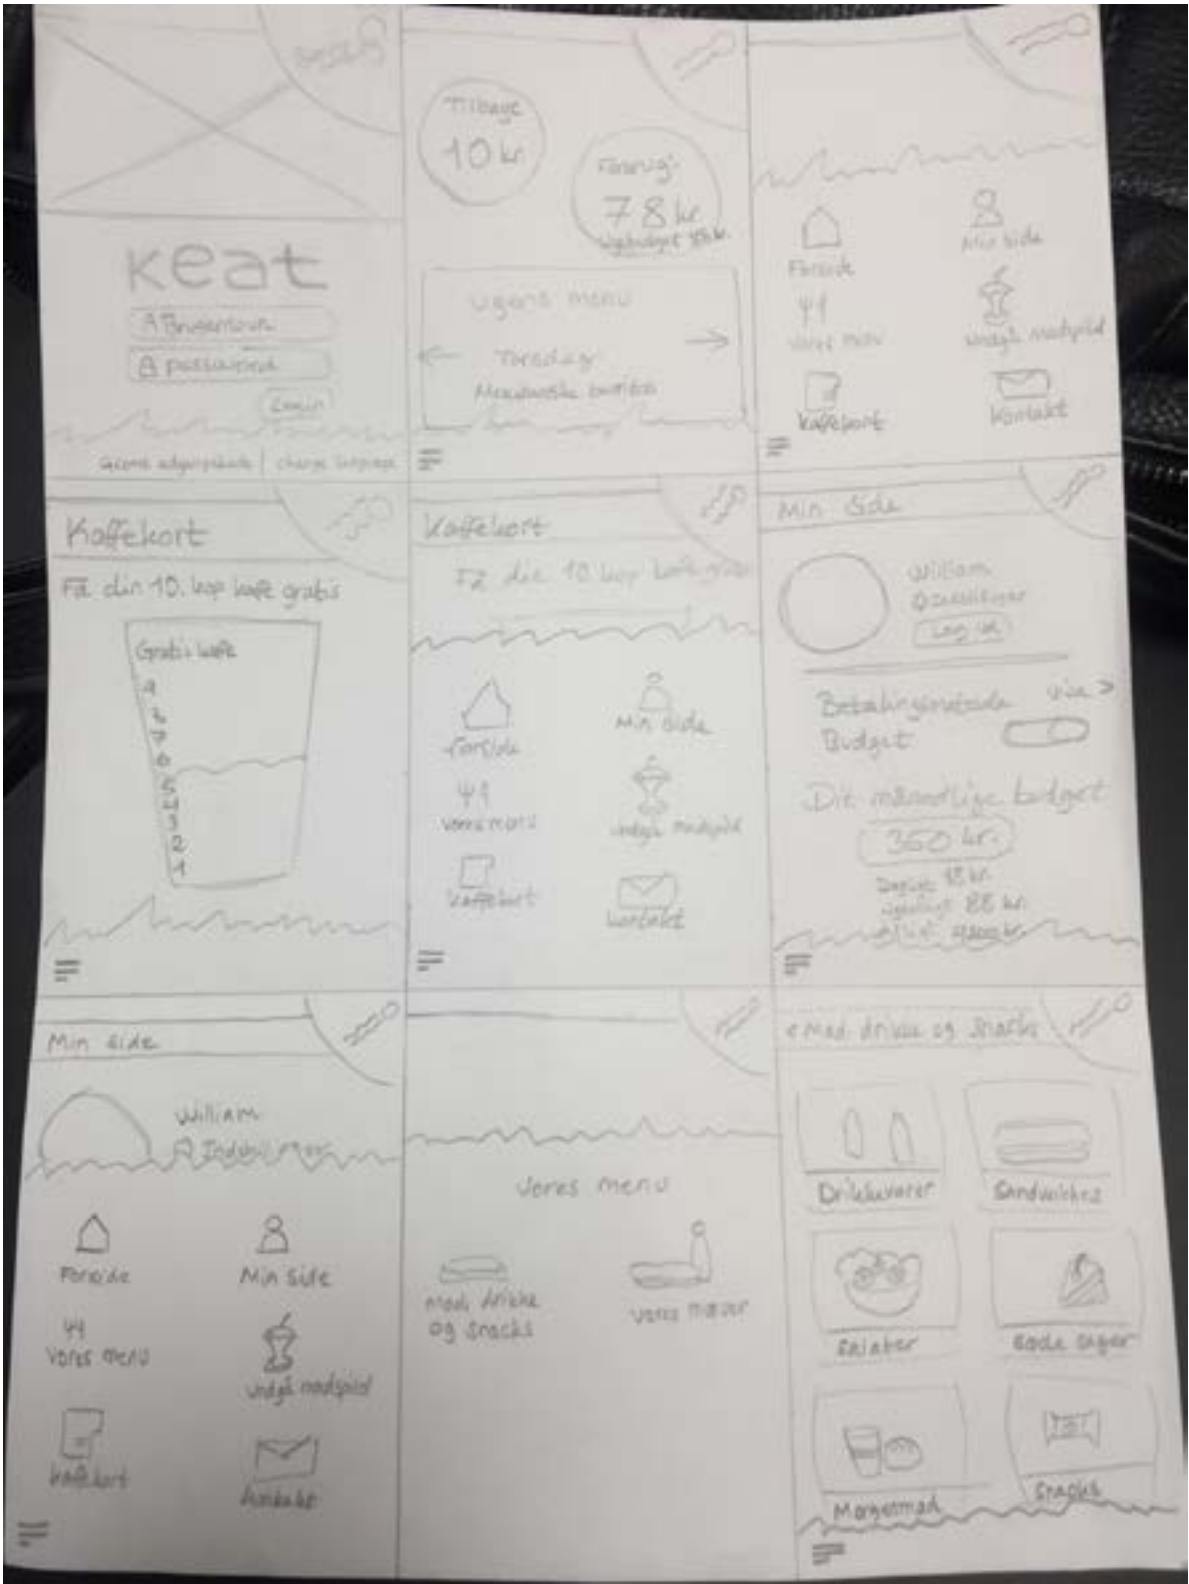 Keat
Brugernavn
password
Login
Glemt adgangskode | change language
Tilbage
10 kr
Forbrug:
78 kr
Ugens menu
Torsdag:
Forside
Min side
Vores menu
Undgå madspild
Kaffekort
Kontakt
Kaffekort
Få din 10. kop kaffe gratis
Gratis kaffe
9
8
7
6
5
4
3
2
1
Kaffekort
Få din 10. kop kaffe gratis
Forside
Min side
Vores menu
Undgå madspild
Kaffekort
Kontakt
Min side
William
Log ud
Betalingsmetode
Budget
Dit månedlige budget
350 kr.
88 kr.
Min side
William
Forside
Min side
Vores menu
Undgå madspild
Kaffekort
Kontakt
Vores menu
Mad, drikke
og snacks
Vores
< Mad, drikke og snacks
Drikkevarer
Sandwiches
Salater
Søde sager
Morgenmad
Snacks